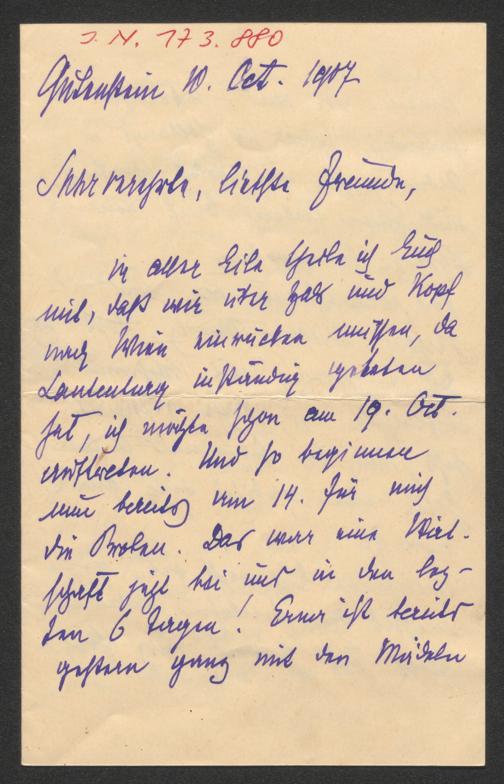 J. N. 173.880
Gutenstein 10. Oct. 1907
Sehr verehrte, liebste Freunde,
in aller Eile theile ich Euch
mit, daß wir über Hals und Kopf
nach Wien einrücken müssen, da
Lautenburg inständig gebeten
hat, ich möchte schon am 19. Oct.
auftreten. Und so beginnen
nun bereits am 14. für mich
die Proben. Das war eine Wirt-
schaft jetzt bei uns in den letz-
ten 6 Tagen! Erna ist bereits
gestern ganz mit den Mädeln